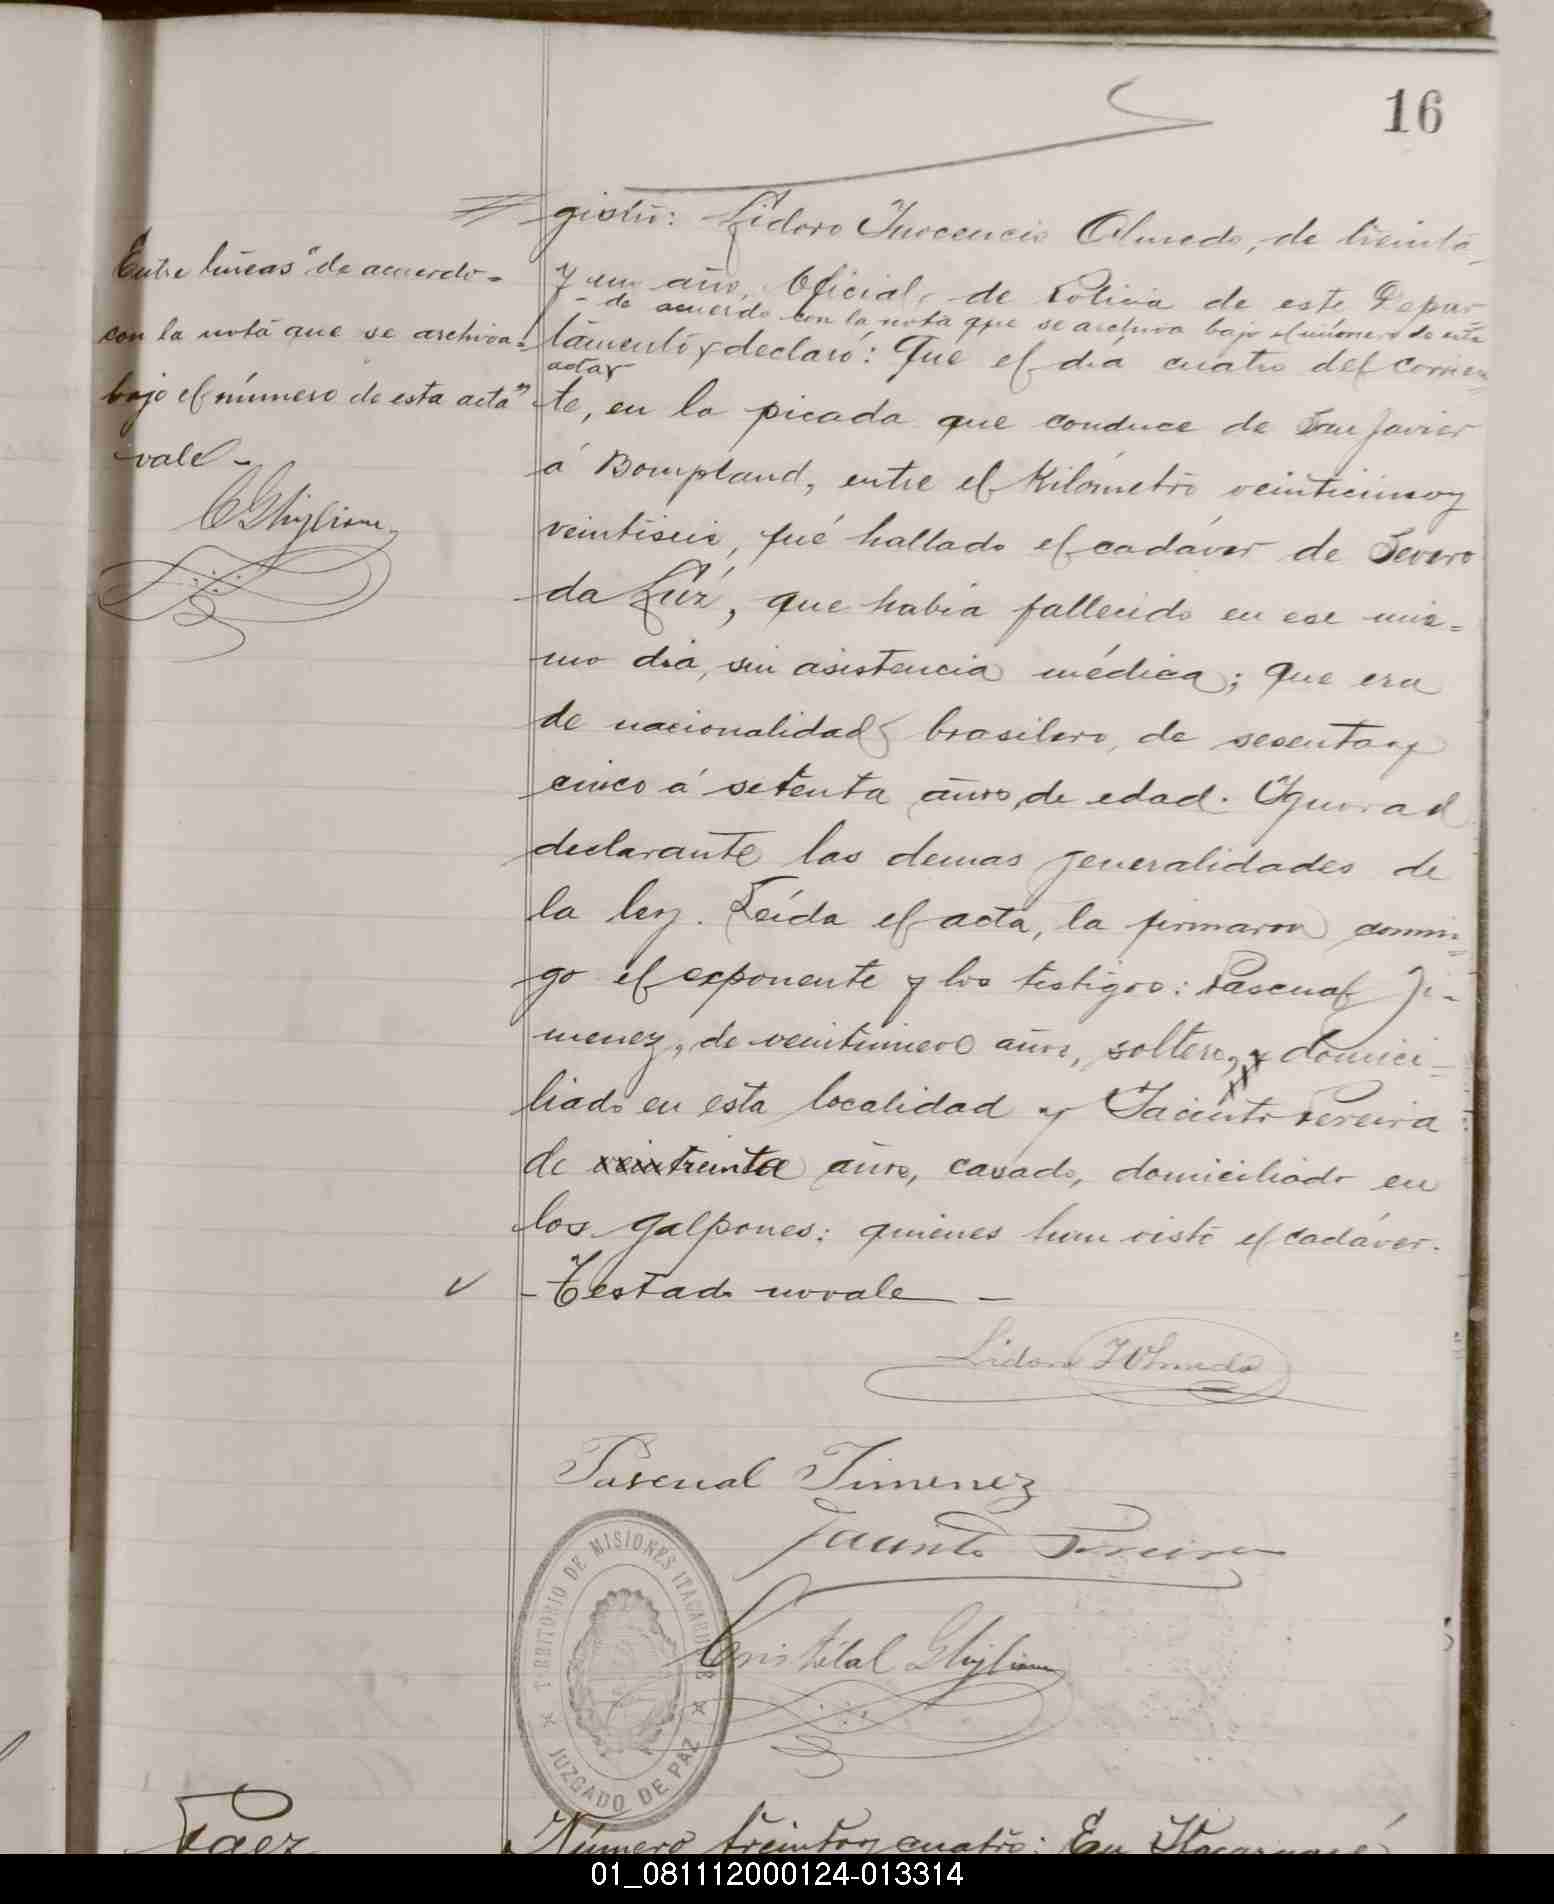 16
gistro: Lidoro Inocencio Olmedo, de treinta
y un años, Oficial, de Policia de este Depar-
- de acuerdo con la nota que se archiva bajo el número de esta
tamento y declaró: Que el dia cuatro del corrien-
acta y
te, en la picada que conduce de San Javier
á Bompland, entre el Kilómetro veinticinco y
veintiseis, fué hallado el cadáver de Severo
da Lúz, que habia fallecido en ese mis=
mo dia, sin asistencia médica; que era
de nacionalidad brasilero, de sesenta y
cinco á setenta años, de edad. Ignora el
declarante las demas generalidades de
la ley. Leída el acta, la firmaron conmi-
go el exponente y los testigos: Pascual Ji-
menez, de veintinueve años, soltero, domici-
liado en esta localidad y Jacinto Pereira
de treinta años, casado, domiciliado en
los galpones; quienes han visto el cadáver.
- Testado no vale -
Entre lineas "de acuerdo=
con la nota que se archiva=
bajo el número de esta acta"
vale -
C Ghiglione
Lidoro I Olmedo
Pascual Jimenez
Jacinto Pereira
Cristóbal Ghiglione
TERRITORIO DE MISIONES ITACARUARE
JUZGADO DE PAZ
Paez
Número treinta y cuatro: En Itacaruaré
01_081112000124-013314